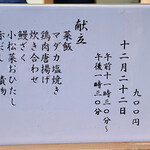 九〇〇円
十二月二十二日
午前十一時三〇分〜
午後一時三〇分
献立
菜飯
マダカ塩焼き
鶏肉唐揚げ
炊き合わせ
鰻ざく
小松菜おひたし